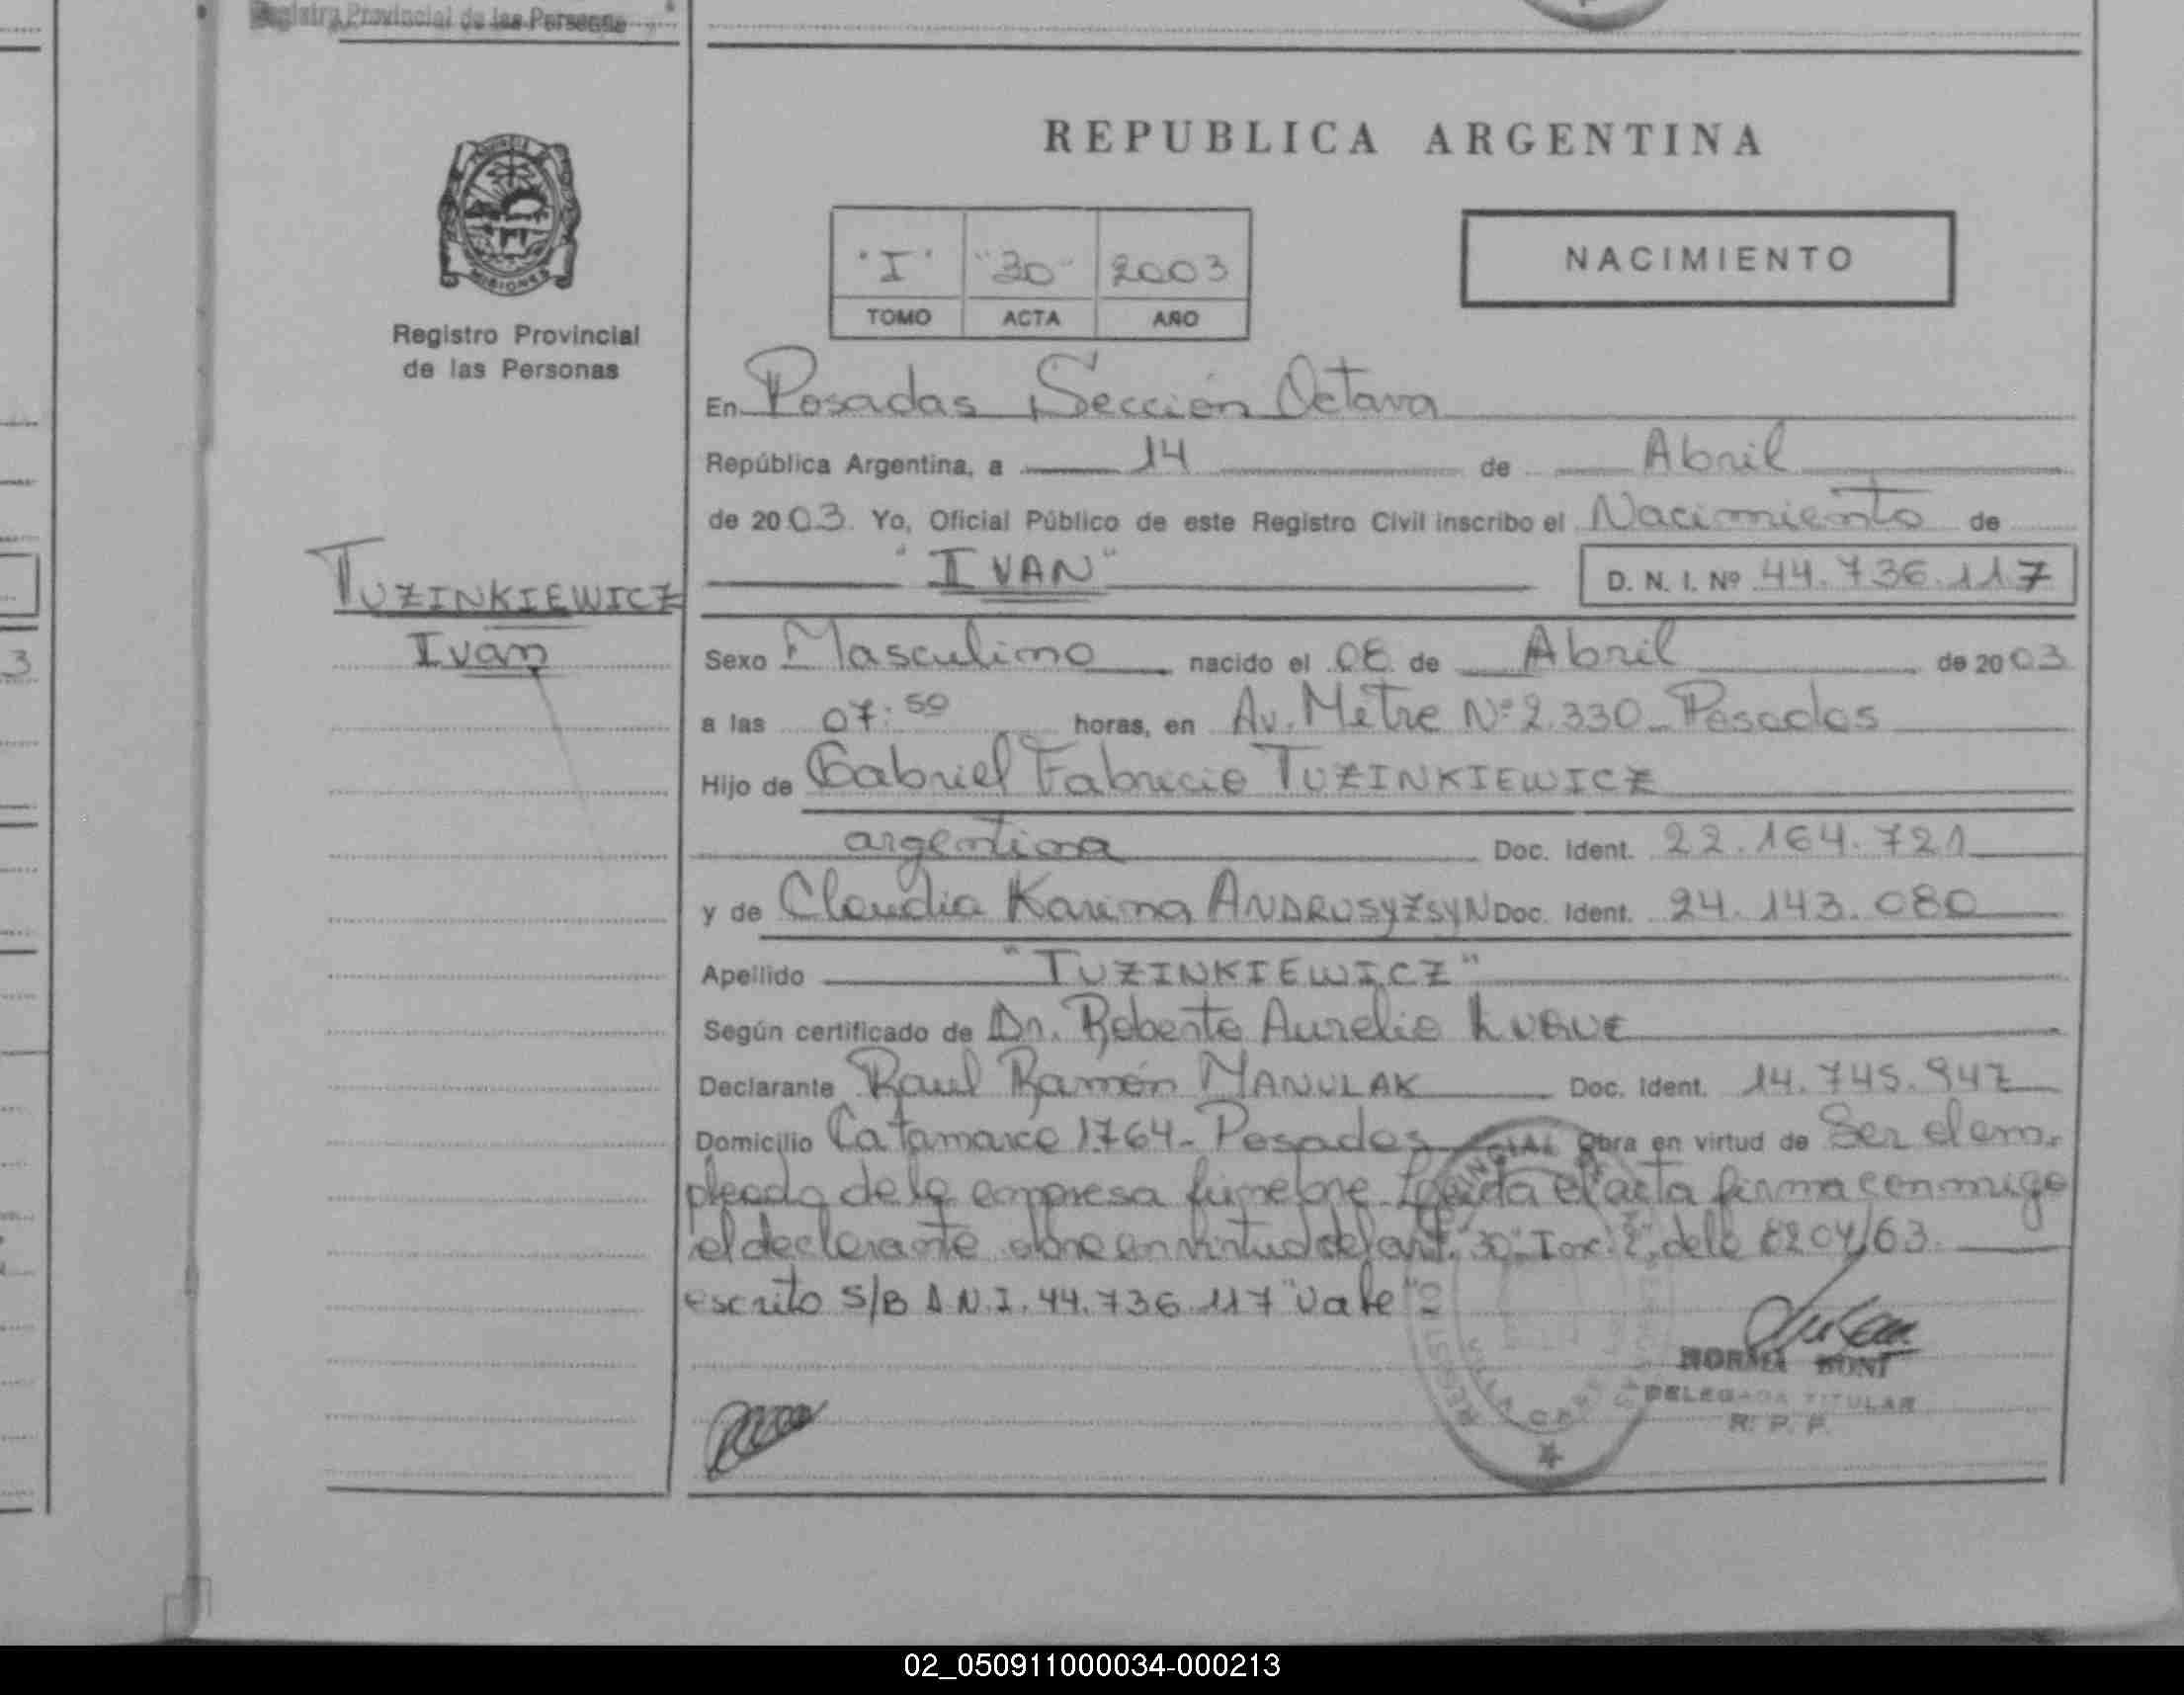 Registro Provincial de las Personas
REPUBLICA ARGENTINA
"I" "30" 2003
TOMO ACTA AÑO
NACIMIENTO
MISIONES
Registro Provincial
de las Personas
TUZINKIEWICZ
Ivan
En Posadas Sección Octava
República Argentina, a 14 de Abril
de 2003. Yo, Oficial Público de este Registro Civil inscribo el Nacimiento de
"IVAN" D. N. I. Nº 44.736.117
Sexo Masculino nacido el 08 de Abril de 2003
a las 07:50 horas, en Av. Mitre Nº 2.330 - Posadas
Hijo de Gabriel Fabricio TUZINKIEWICZ
argentina Doc. Ident. 22.164.721
y de Claudia Karina ANDRUSYZSYN Doc. Ident. 24.143.080
Apellido "TUZINKIEWICZ"
Según certificado de Dr. Roberto Aurelio
Declarante Raul Ramón MANULAK Doc. Ident. 14.745.947
Domicilio Catamarca 1764 - Posadas Obra en virtud de Ser el em-
pleado de la empresa fúnebre Leída el acta firma conmigo
el declarante obra en virtud del art. 30 Inc. 2 de la 8204/63.
escrito S/B D.N.I. 44.736.117 "Vale"
NORMA BONI
DELEGADA TITULAR
R. P. P.
02_050911000034-000213